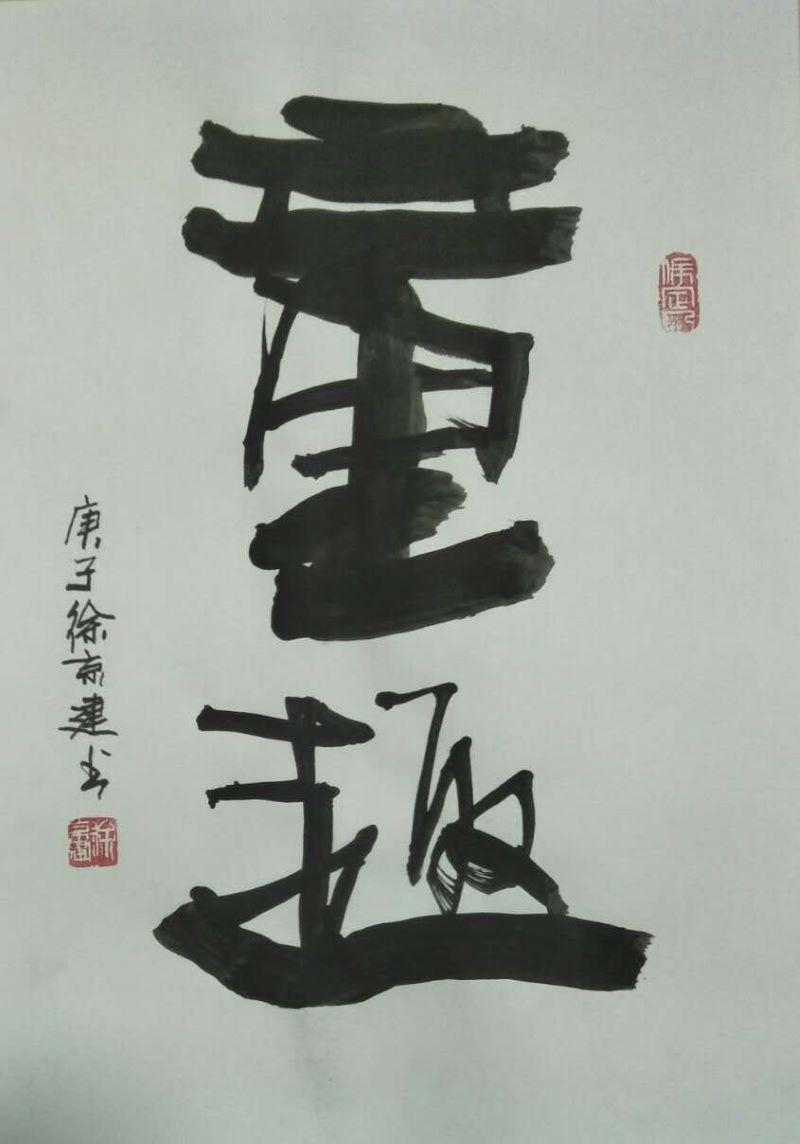 童趣
庚子徐京建书